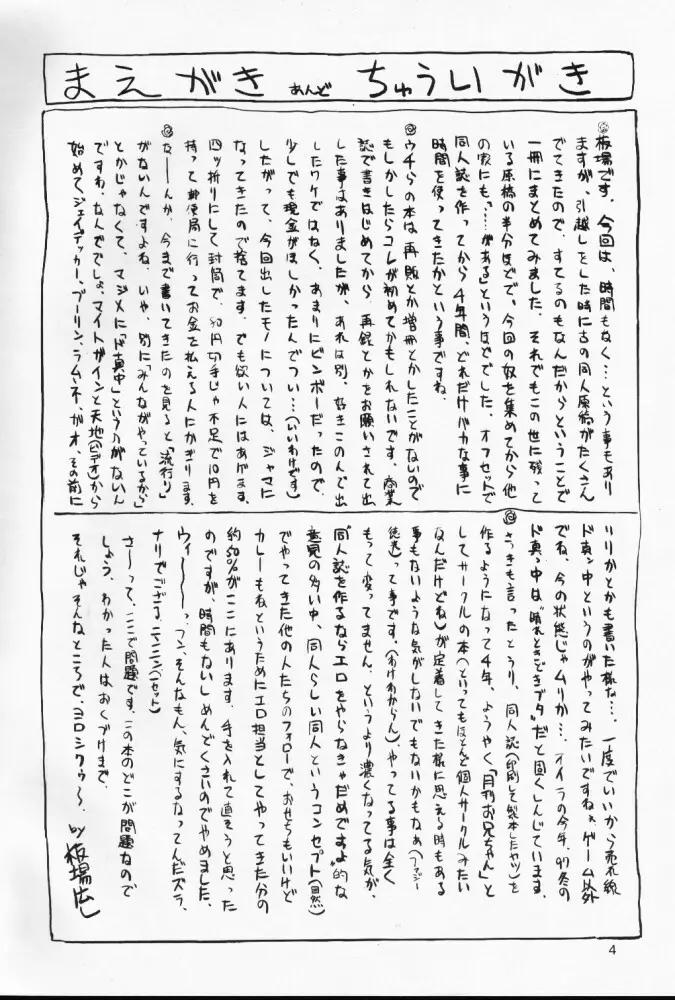 まえがき あんど ちゅういがき
◎板場です。今回は、時間もなく…という事もあり
ますが、引越しをした時に古の同人原稿がたくさん
でてきたので、すてるのもなんだからということで
一冊にまとめてみました。それでもこの世に残って
いる原稿の半分ほどで、今回の奴を集めてから他
の家にも、"……がある"というほどでした。オフセットで
同人誌を作ってから4年間、どれだけバカな事に
時間を使ってきたかという事ですね。
◎ウチらの本は再販とか増冊とかしたことがないので
もしかしたらコレが初めてかもしれないです。商業
誌で書きはじめてから、再録とかをお願いされて出
した事はありましたが、あれは別。好きこのんで出
したワケではなく、あまりにビンボーだったので、
少しでも現金がほしかったんでつい…(いいわけです)
したがって、今回出したモノについては、ジャマに
なってきたので捨てます。でも欲い人にはあげます。
四ッ折りにして封筒で、80円切手じゃ不足で10円を
持って郵便局に行ってお金を払える人にかぎります。
◎なーーんか、今まで書いてきたのを見ると「流行り」
がないんですよね。いや、別に「みんながやっているから」
とかじゃなくて、マジメに「ド真中」というのがないん
ですわ。なんででしょ。マイトガインと天地(ビデオ)から
始めて、ジェイデッカー、プーリン、ラムネ、ガオ、その前に
リリカとかも書いた様な…。一度でいいから売れ線
ド真ン中というのがやってみたいですねぇ。ゲーム以外
でね、今の状態じゃムリか…。オイラの今年、97冬の
ド真っ中は"晴れときどきブタ"だと固くしんじています。
◎さっきも言ったとうり、同人誌(印刷して製本したヤツ)を
作るようになって4年、ようやく「月刊お兄ちゃん」と
してサークルの本(といってもほとんど個人サークルみたい
なんだけどね)が定着してきた様に思える時もある
事もないような気がしないでもないかもなぁ(ファジー
徒然)って事です。(わけわからん)、やってる事は全く
もって変ってません。というより濃くなってる気が、
"同人誌を作るならエロをやらなきゃだめですよ"的な
意見の多い中、同人らしい同人というコンセプト(自然)
でやってきた他の人たちのフォローで、おせちもいいけど
カレーもねというためにエロ担当としてやってきた分の
約50%がここにあります。手を入れて直そうと思った
のですが、時間もないしめんどくさいのでやめました。
ウィーーーっ、フン、そんなもん、気にするなってんだズラ、
ナリでござる、ニンニン(1セット)
さーって、ここで問題です。この本のどこが問題なので
しょう。わかった人はおくづけまで。
それじゃそんなところで、ヨロシクゥ〜。 by板場広し
4